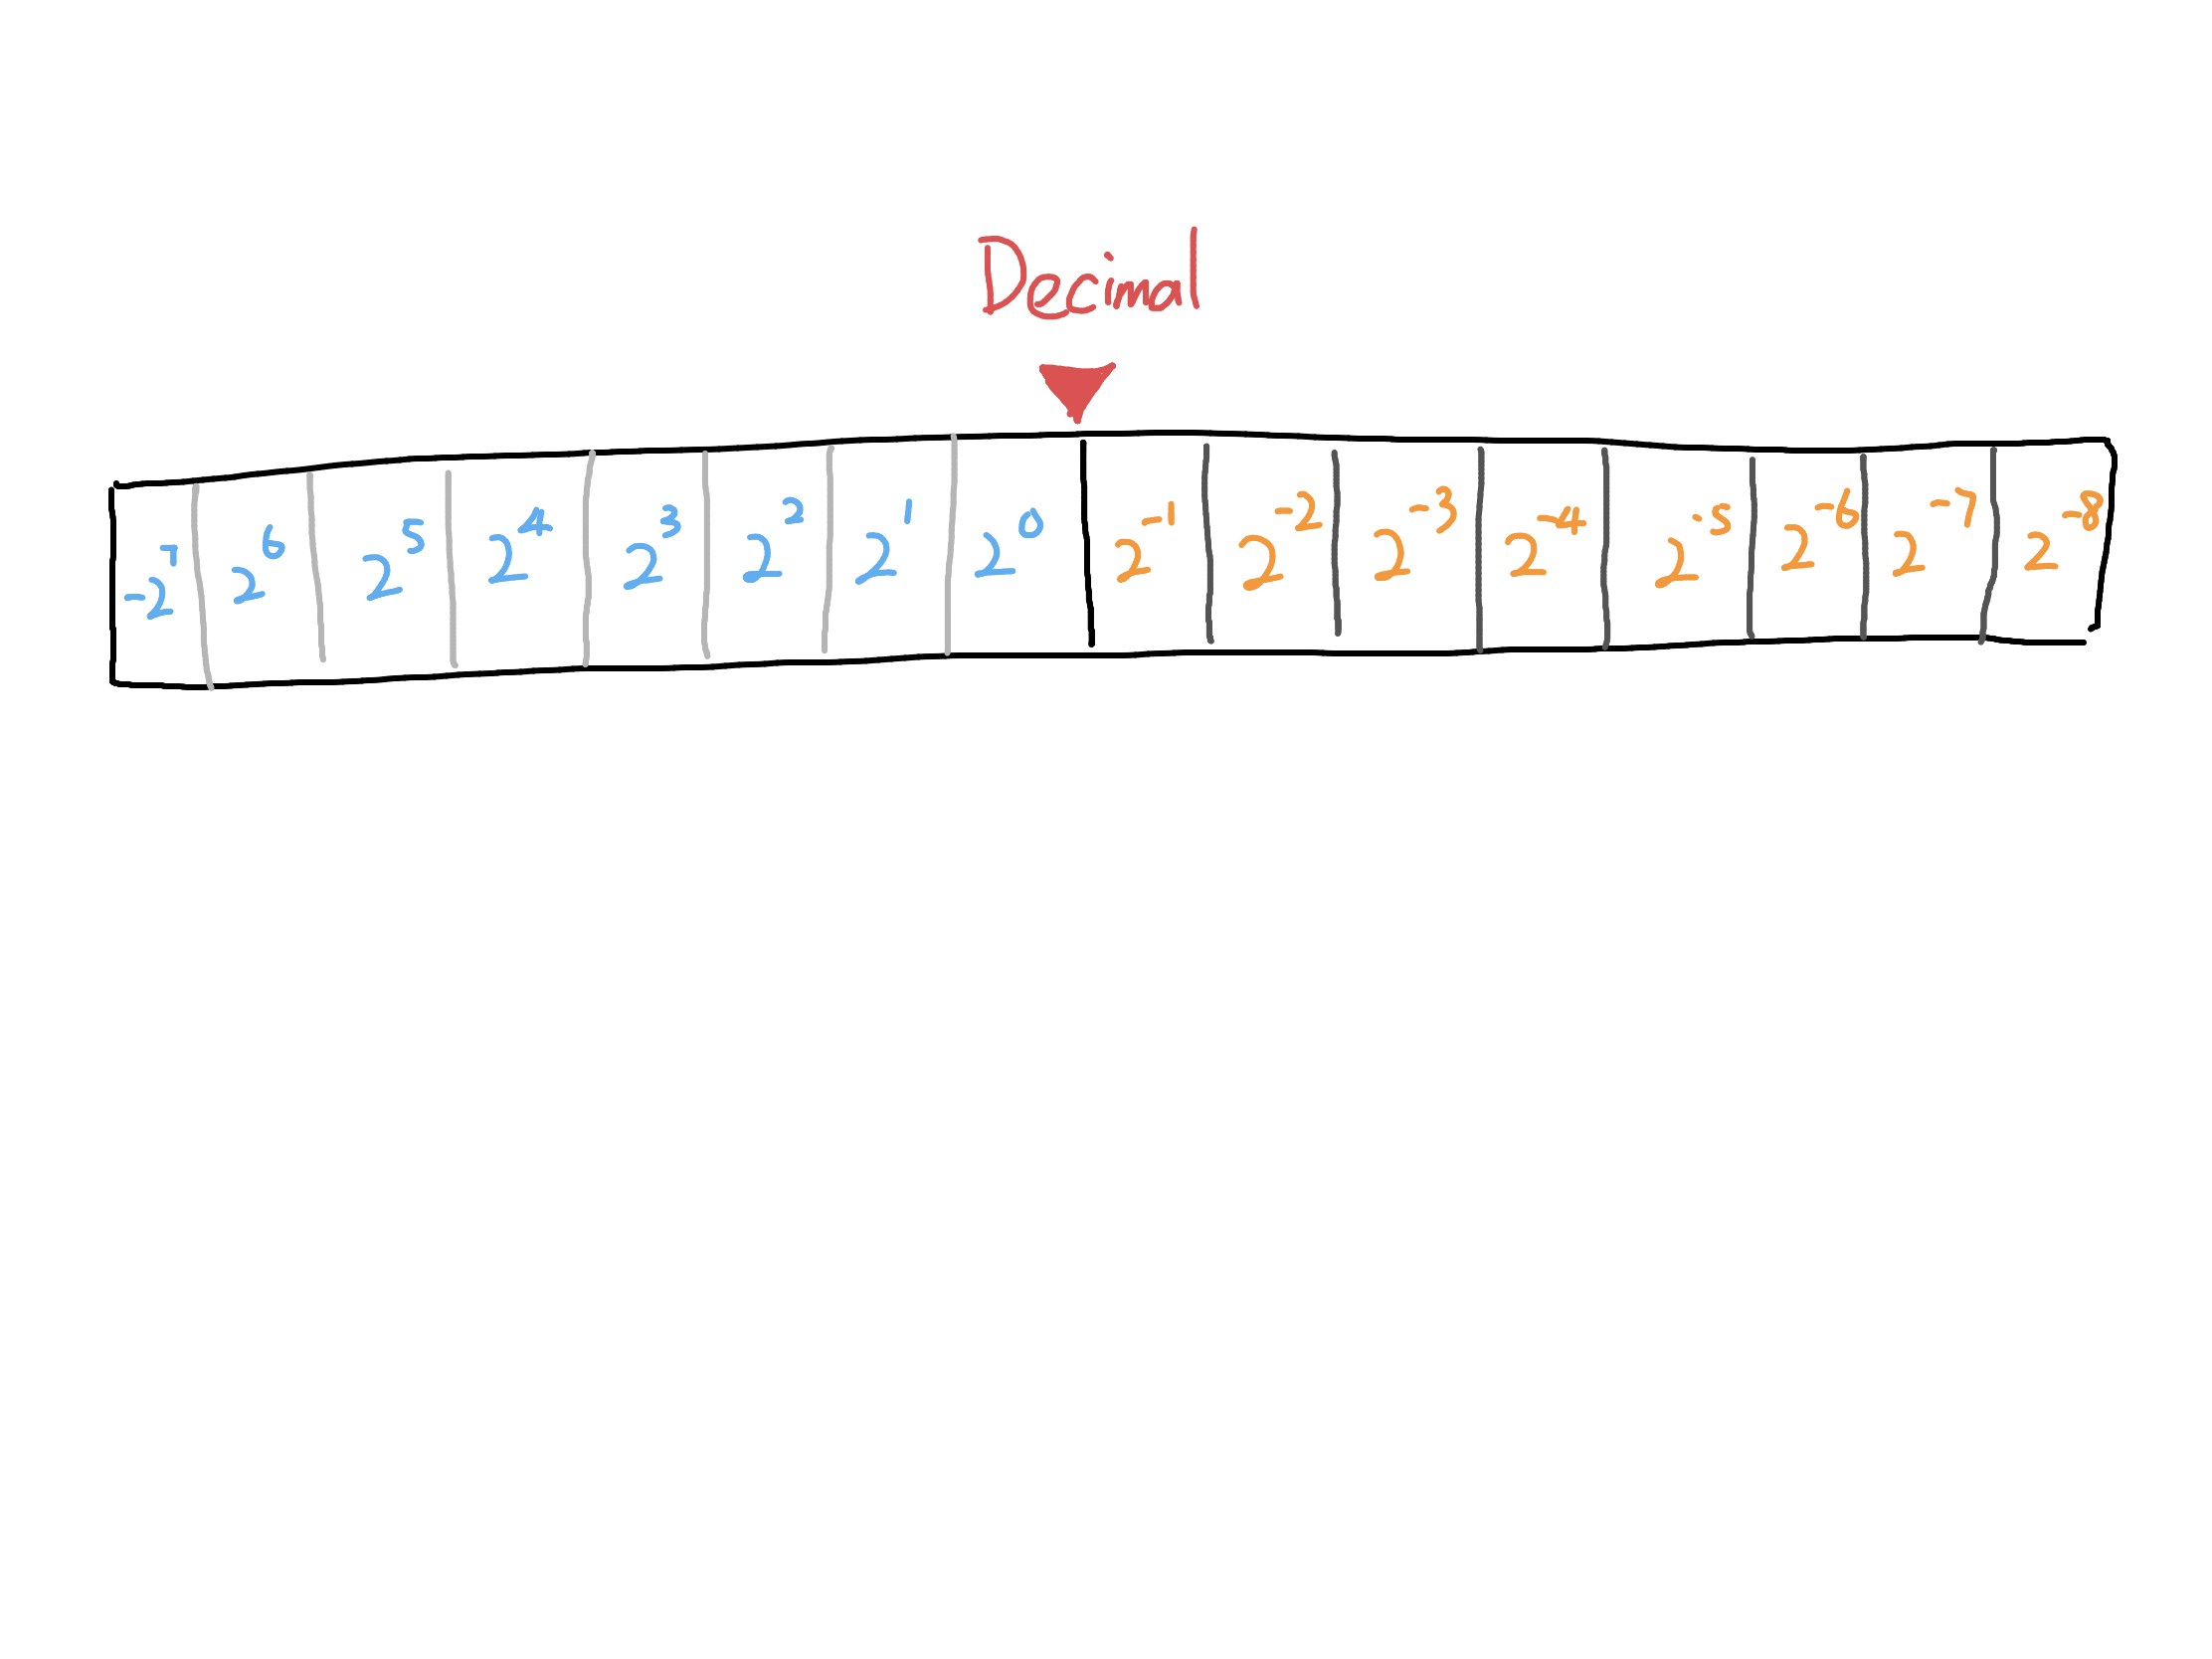 Decimal
-2⁷ 2⁶ 2⁵ 2⁴ 2³ 2² 2¹ 2⁰ 2⁻¹ 2⁻² 2⁻³ 2⁻⁴ 2⁻⁵ 2⁻⁶ 2⁻⁷ 2⁻⁸